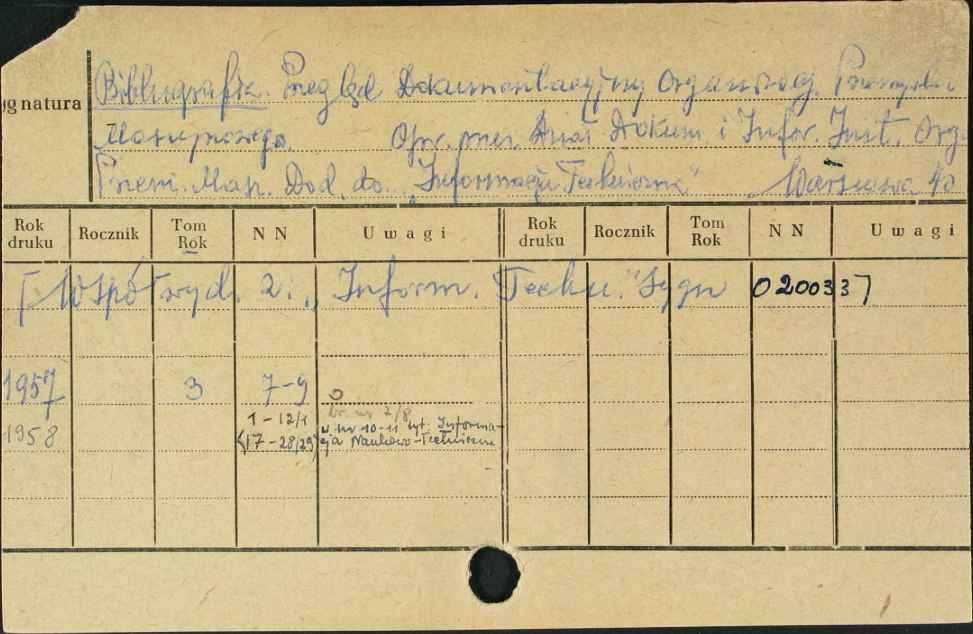 ygnatura
Bibliografia. Przegląd Dokumentacyjny Organizacji Przemysłu
Maszynowego. Opr. przez Dział Dokum i Infor. Inst. Org.
Przem. Masz. Dod. do „Informacji Technicznej" Warszawa 4o
Rok druku Rocznik Tom Rok N N Uwagi Rok druku Rocznik Tom Rok N N Uwagi
[Współwyd. z. „Inform. Techn." Sygn 020033]
1957 3 7-9
br. nr 7/8
1958 1-12/1 w nr 10-11 tyt. Informa-
(17-28/29) cja Naukowo-Techniczna